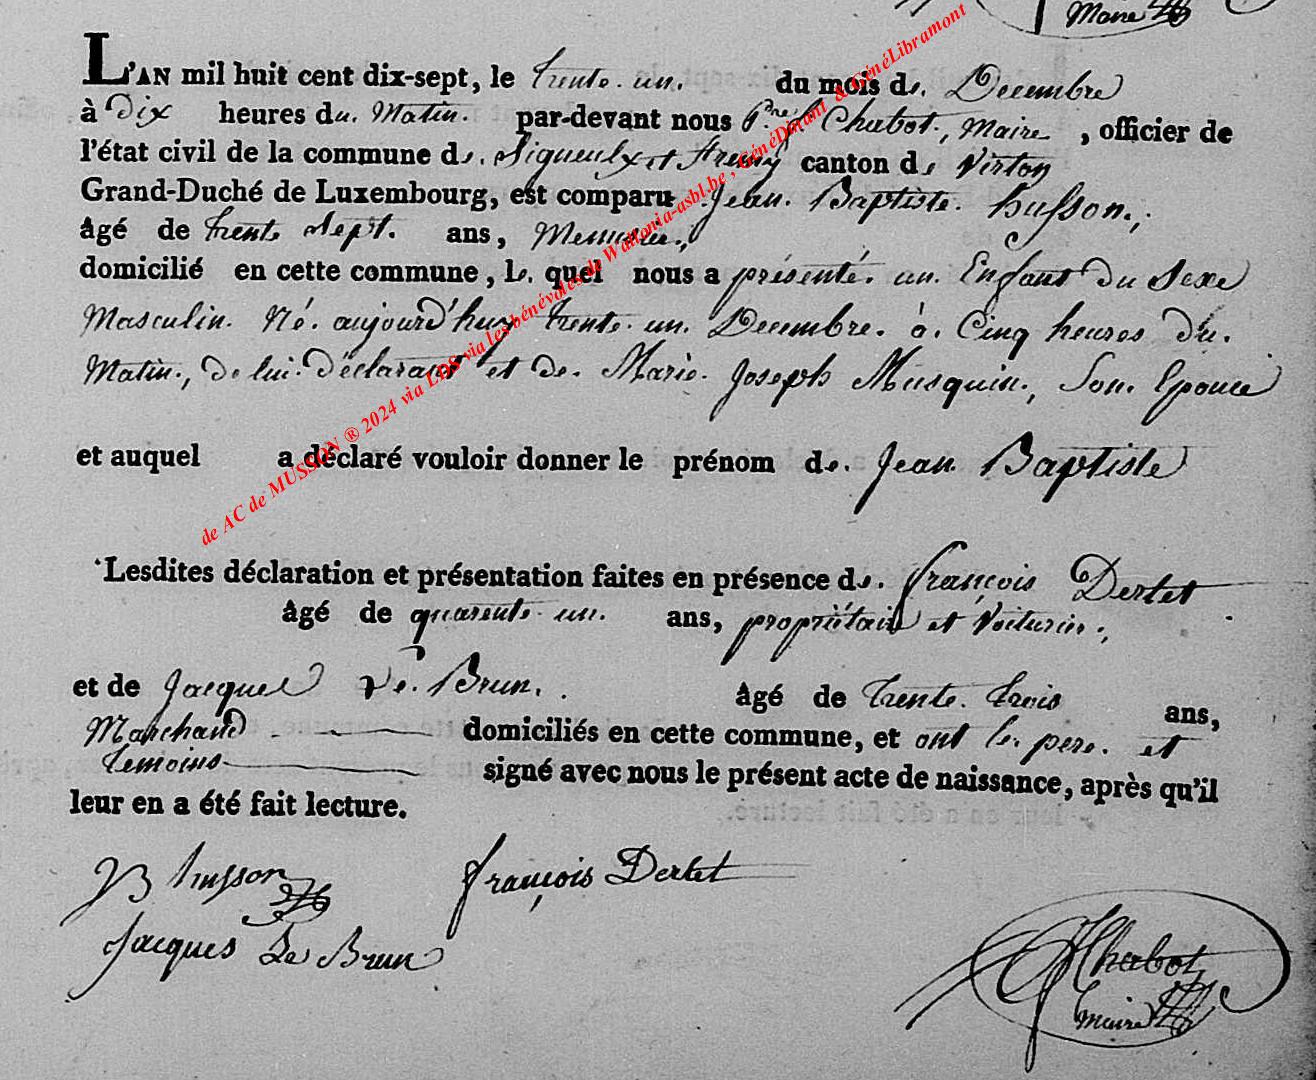 Maire
L'AN mil huit cent dix-sept, le trente un. du mois de. Decembre
à Dix heures du. Matin. par-devant nous Chabot, Maire , officier de
l'état civil de la commune de. Signeulx et canton de Virton
Grand-Duché de Luxembourg, est comparu Jean. Baptiste. husson.,
âgé de trente sept. ans, Menusier,
domicilié en cette commune, Le. quel nous a présenté. un. Enfant du Sexe
Masculin. Né. aujourd'huy trente. un. Decembre. à. Cinq heures du.
Matin., de lui. déclarant et de. Marie. Joseph Musquin., Son. Epouse
et auquel a déclaré vouloir donner le prénom de. Jean. Baptiste
Lesdites déclaration et présentation faites en présence de. françois Dertet
âgé de quarente un. ans, propriétaire et Voiturier.,
et de Jacques Le. Brun. . âgé de trente. trois ans,
Marchand domiciliés en cette commune, et ont le. pere. et
temoins signé avec nous le présent acte de naissance, après qu'il
leur en a été fait lecture.
JB husson françois Dertet
Jacques Le Brun
Chabot
maire
de AC de MUSSON ® 2024 via LDS via les bénévoles de Wallonia-asbl.be , GénéDinant & GénéLibramont